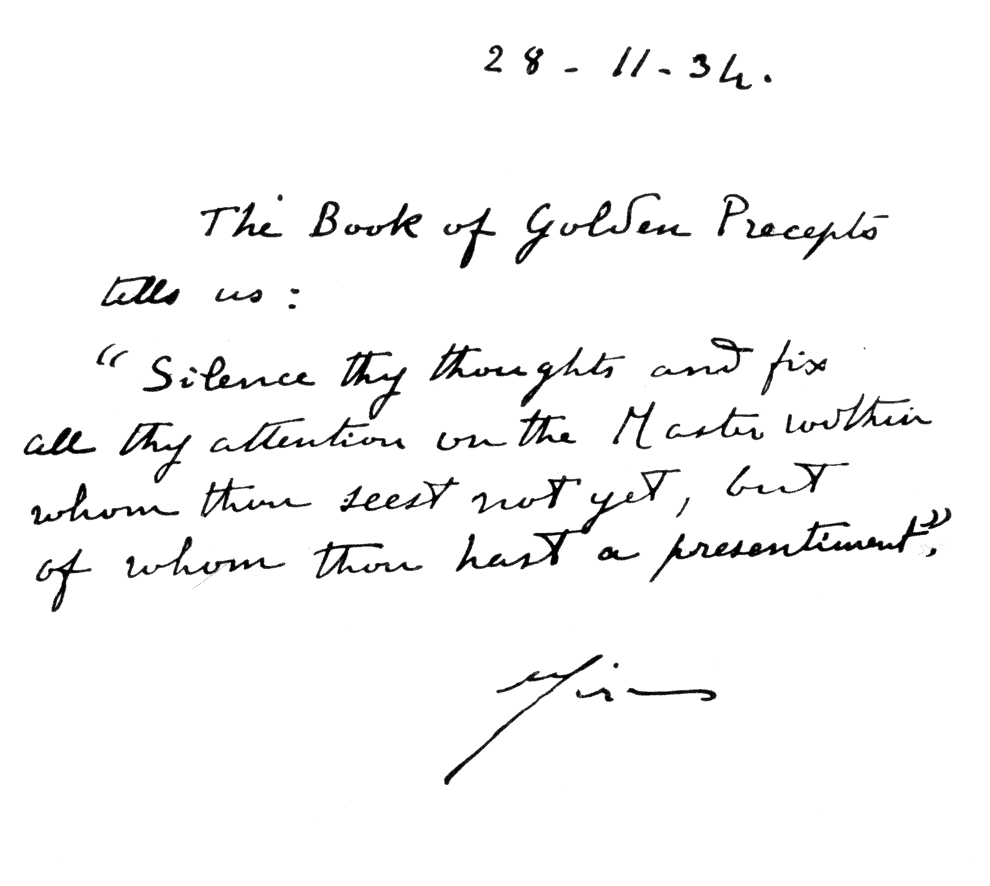 28-11-34.
The Book of Golden Precepts
tells us :
“ Silence thy thoughts and fix
all thy attention on the Master within
whom thou seest not yet, but
of whom thou hast a presentiment”.